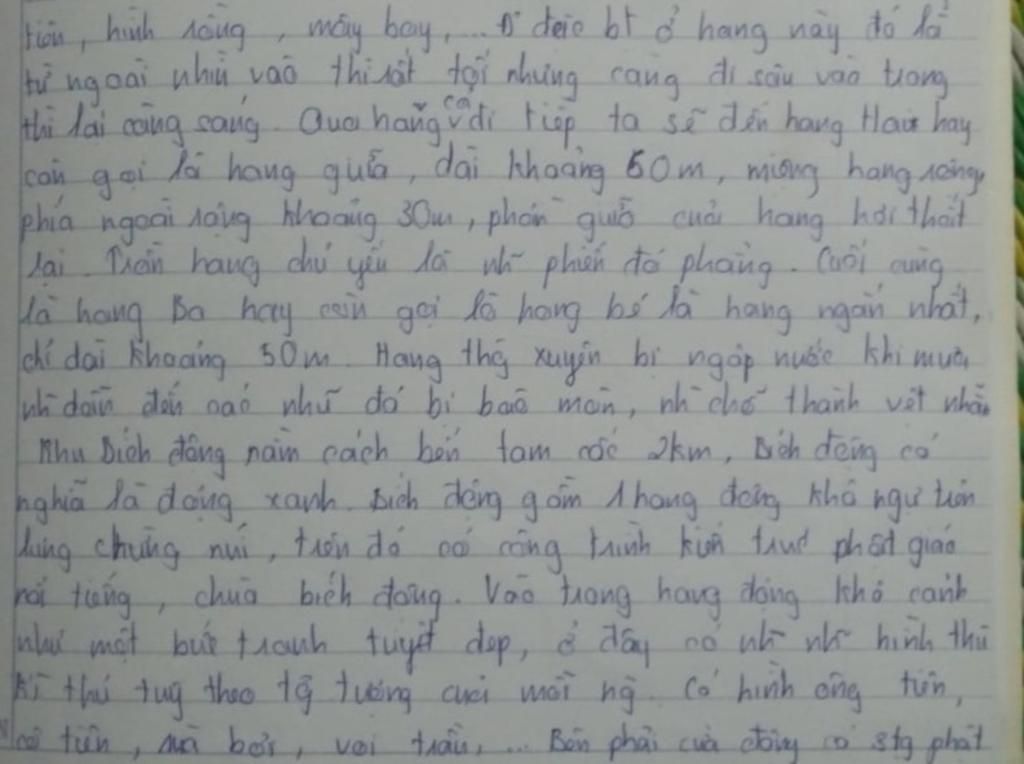 tiên, hình rồng, mây bay,... Đ đặc bt ở hang này đó là
từ ngoài nhìn vào thì rất tối nhưng càng đi sâu vào trong
thì lại càng sáng. Qua hang cả đi tiếp ta sẽ đến hang Hai hay
còn gọi là hang giữa, dài khoảng 60m, miệng hang rộng,
phía ngoài rộng khoảng 30m, phần giữa của hang hơi thắt
lại. Trần hang chủ yếu là nh~ phiến đá phẳng. Cuối cùng
là hang Ba hay còn gọi là hang bé là hang ngắn nhất,
chỉ dài khoảng 50m. Hang thg xuyên bị ngập nước khi mưa,
nh~ đá bị bào mòn, nh~ chỗ thành vệt nhẵn
Khu Bích động nằm cách bến tam cốc 2km, Bích động có
nghĩa là động xanh. Bích động gồm 1 hang động khô ngự trên
lưng chừng núi, trên đó có công trình kiến trúc phật giáo
nổi tiếng, chùa bích động. Vào trong hang động khô cảnh
như một bức tranh tuyệt đẹp, ở đây có nh~ nh~ hình thù
kì thú tuỳ theo tg tượng của mỗi ng. Có hình ông tiên,
cô tiên, voi trầu,... Bên phải của động có 3tg phật